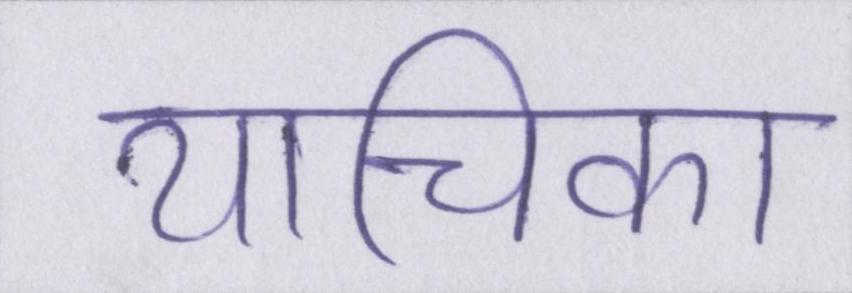 याचिका